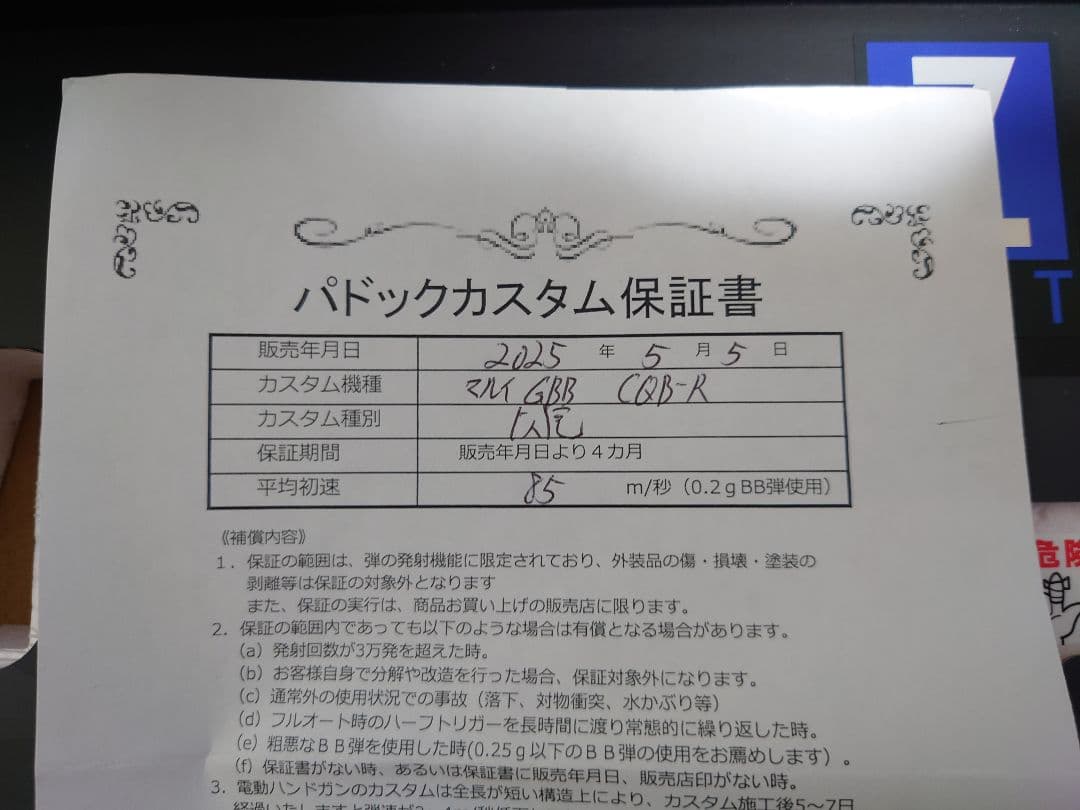 パドックカスタム保証書
販売年月日 2025 年 5 月 5 日
カスタム機種 マルイ GBB CQB-R
カスタム種別
保証期間 販売年月日より4カ月
平均初速 85 m/秒（0.2gBB弾使用）
《補償内容》
1．保証の範囲は、弾の発射機能に限定されており、外装品の傷・損壊・塗装の
剥離等は保証の対象外となります
また、保証の実行は、商品お買い上げの販売店に限ります。
2．保証の範囲内であっても以下のような場合は有償となる場合があります。
(a) 発射回数が3万発を超えた時。
(b) お客様自身で分解や改造を行った場合、保証対象外になります。
(c) 通常外の使用状況での事故（落下、対物衝突、水かぶり等）
(d) フルオート時のハーフトリガーを長時間に渡り常態的に繰り返した時。
(e) 粗悪なＢＢ弾を使用した時(0.25ｇ以下のＢＢ弾の使用をお薦めします）。
(f) 保証書がない時、あるいは保証書に販売年月日、販売店印がない時。
3．電動ハンドガンのカスタムは全長が短い構造上により、カスタム施工後5～7日
T
危険